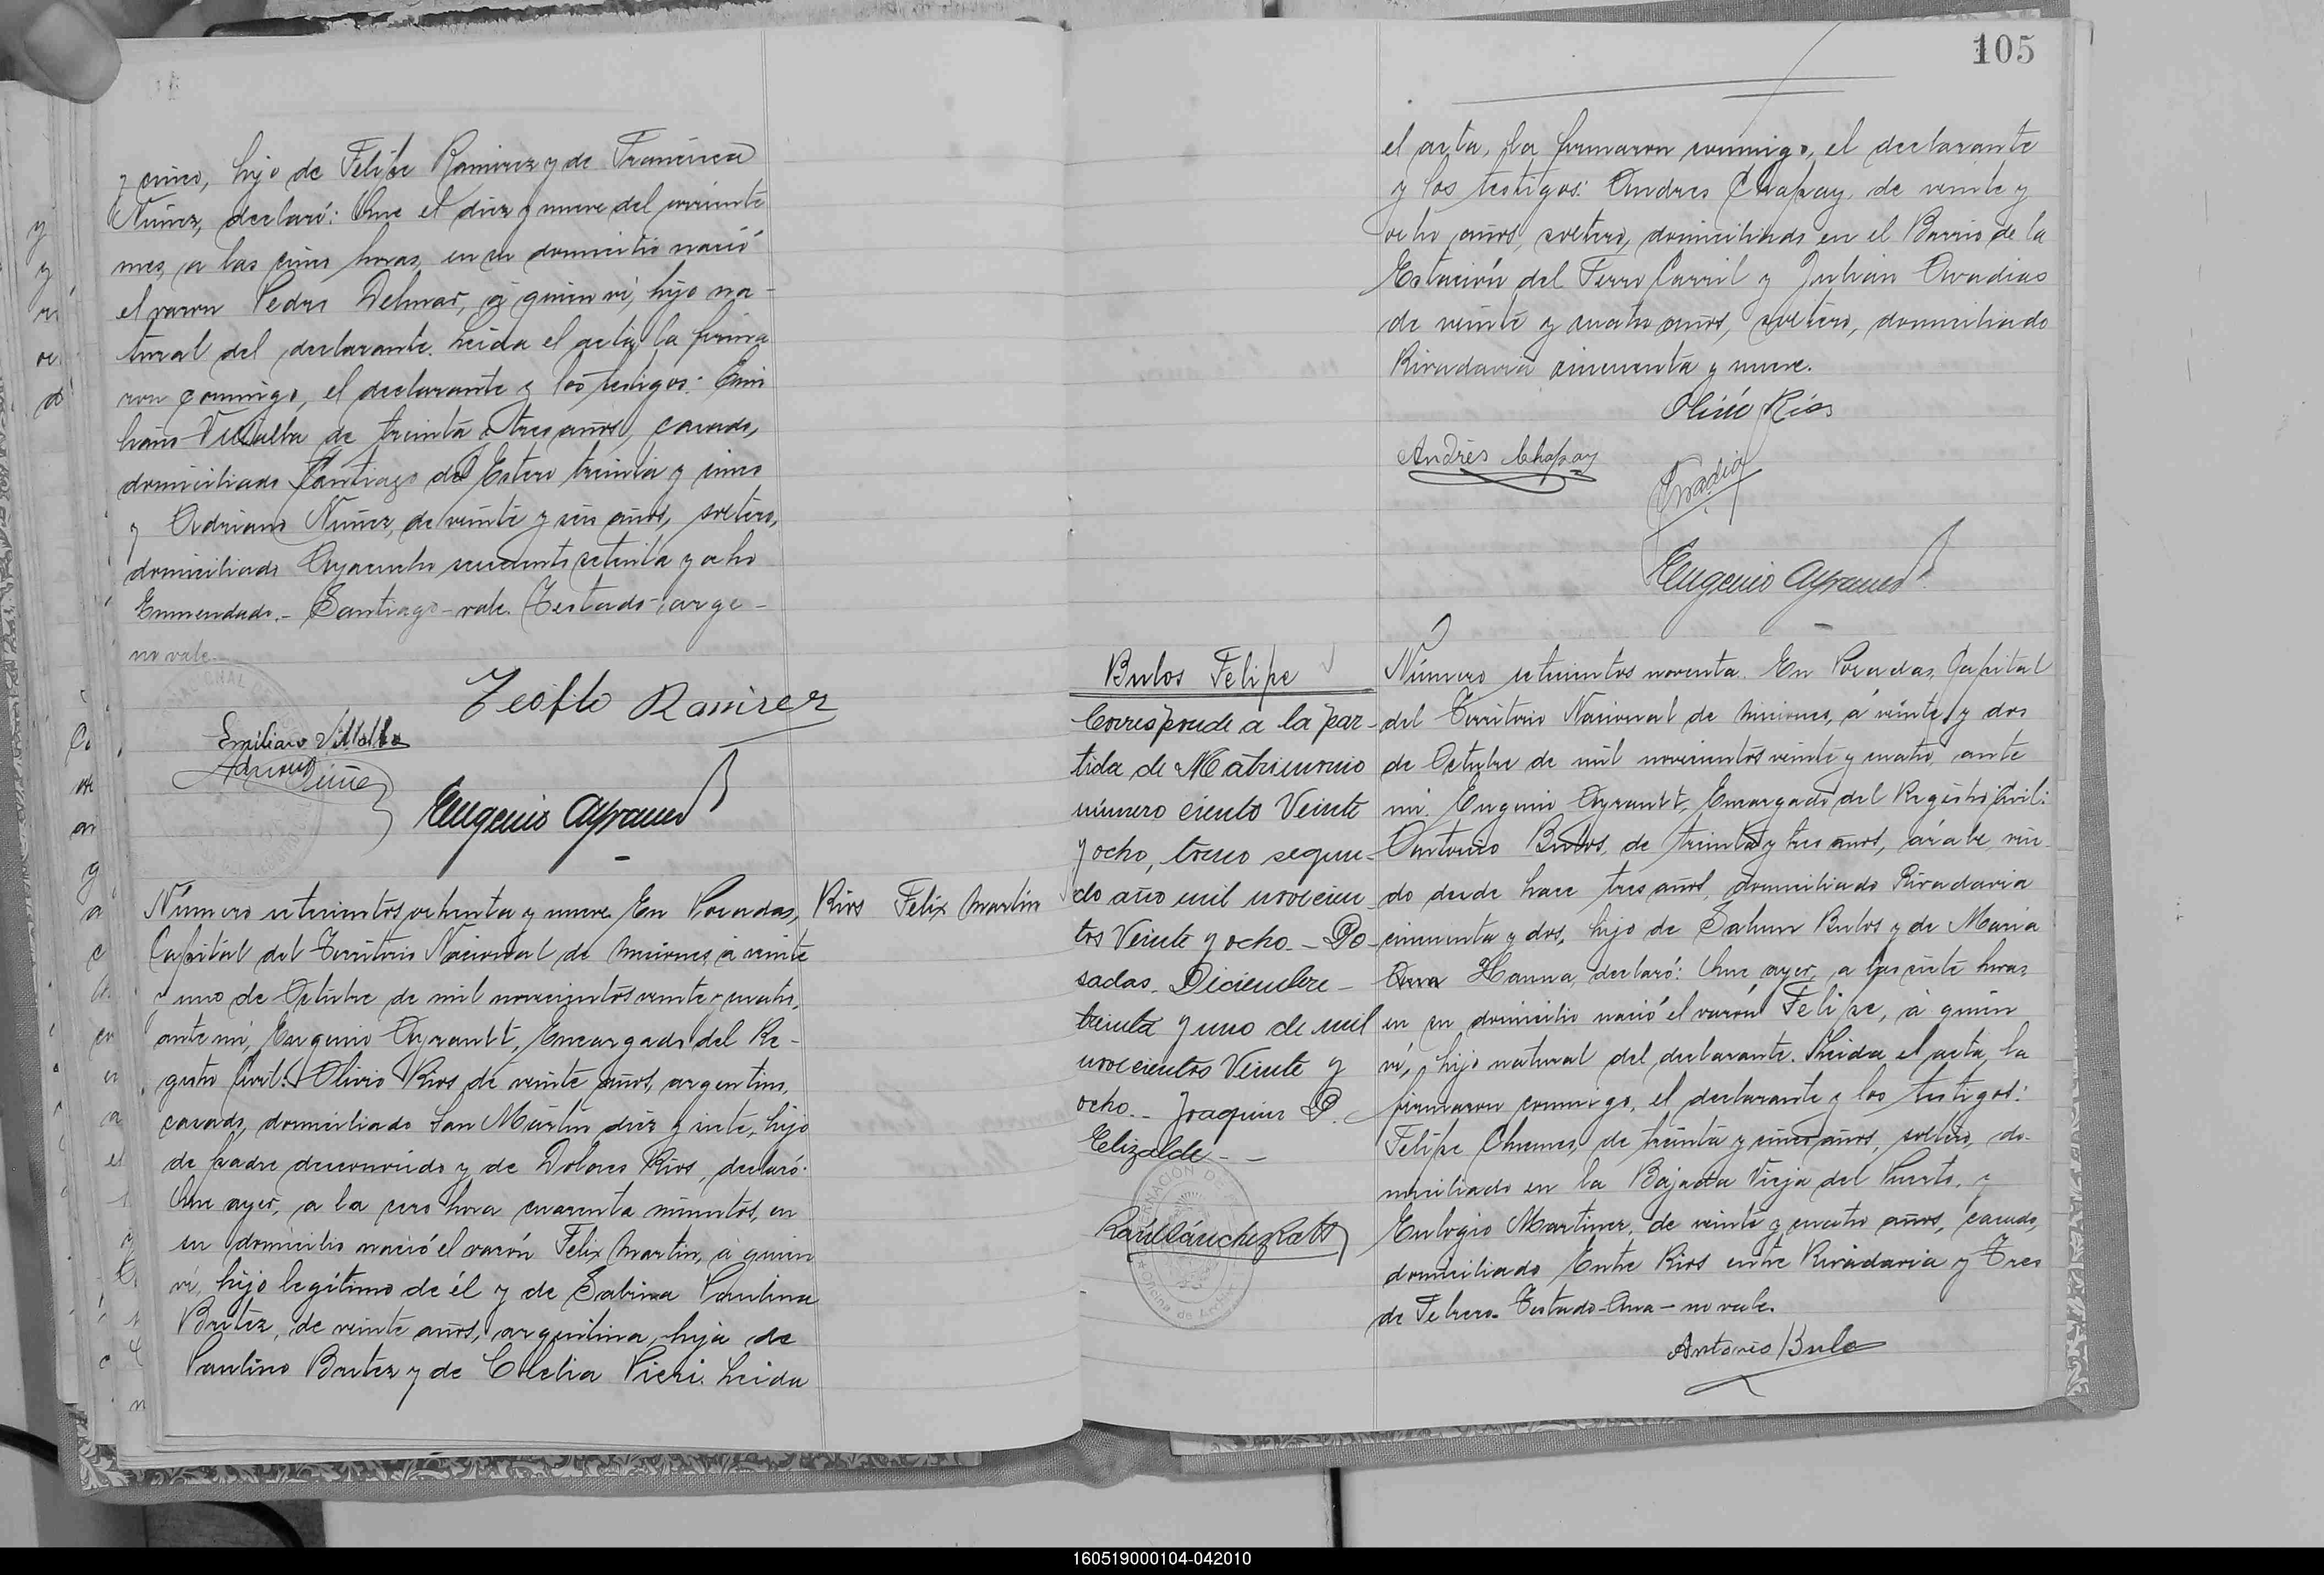 y cinco, hijo de Felipe Ramirez y de Francisca
Nuñez, declaró: Que el diez y nueve del corriente
mes, a las cinco horas, en su domicilio nació
el varon Pedro Delmar, á quien ví, hijo na-
tural del declarante. Leida el acta, la firma
ron conmigo, el declarante y los testigos: Emi
liano Villalba de treinta y tres años, casado,
domiciliado Santiago del Estero treinta y cinco
y Adriano Nuñez, de veinte y seis años, soltero,
domiciliado Ayacucho seiscientos setenta y ocho
Enmendado.- Santiago - vale. Testado - arge -
no vale.
Teofilo Ramirez
Emiliano Villalba
Adriano Nuñez
Eugenio Ayrault
Número setecientos ochenta y nueve. En Posadas,
Capital del Territorio Nacional de Misiones, á veinte
y uno de Octubre de mil novecientos veinte y cuatro,
ante mí, Eugenio Ayrault, Encargado del Re-
gistro Civil: Olivio Rios de veinte años, argentino,
casado, domiciliado San Martín diez y siete, hijo
de padre desconocido y de Dolores Rios, declaró:
Que ayer, a la cero hora cuarenta minutos, en
su domicilio nació el varón Felix Martin, á quien
ví, hijo legítimo de él y de Sabina Paulina
Britez, de veinte años, argentina, hija de
Paulino Britez y de Clelia Pieri. Leida
Rios Felix Martin
105
el acta, la firmaron conmigo, el declarante
y los testigos: Andres Chapay, de veinte y
ocho años, soltero, domiciliado en el Barrio de la
Estación del Ferro Carril y Julian Ovadias
de veinte y cuatro años, soltero, domiciliado
Rivadavia cincuenta y nueve.
Olivio Rios
Andrés Chapay
Eugenio Ayrault
Bulos Felipe
Corresponde a la par-
tida de Matrimonio
número ciento Veinte
y ocho, tomo segun-
do año mil novecien-
tos Veinte y ocho.- Po-
sadas. Diciembre -
treinta y uno de mil
novecientos Veinte y
ocho.- Joaquin P.
Elizalde - -
Número setecientos noventa. En Posadas, Capital
del Territorio Nacional de Misiones, á veinte y dos
de Octubre de mil novecientos veinte y cuatro, ante
mí, Eugenio Ayrault, Encargado del Registro Civil:
Antonio Bulos, de treinta y tres años, arabe, viu-
do desde hace tres años, domiciliado Rivadavia
cincuenta y dos, hijo de Bulos y de Maria
Ana Hanna, declaró: Que ayer, a las siete horas
en su domicilio nació el varón Felipe, á quien
ví, hijo natural del declarante. Leida el acta, la
firmaron conmigo, el declarante y los testigos:
Felipe de treinta y cinco años, soltero, do-
miciliado en la Bajada Vieja del Puerto, y
Eulogio Martinez, de veinte y cuatro años, casado,
domiciliado Entre Rios entre Rivadavia y Tres
de Febrero. Testado - Ana - no vale.
Antonio Bulo
160519000104-042010